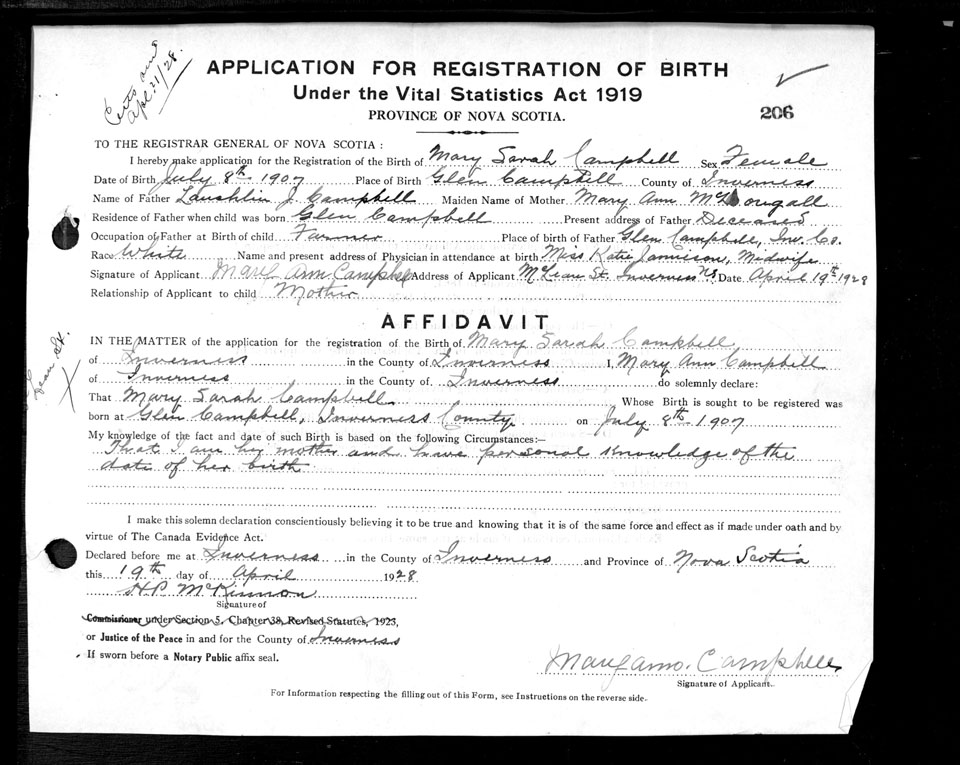 Apl. 21/28.
APPLICATION FOR REGISTRATION OF BIRTH
Under the Vital Statistics Act 1919
PROVINCE OF NOVA SCOTIA.
206
TO THE REGISTRAR GENERAL OF NOVA SCOTIA :
I hereby make application for the Registration of the Birth of Mary Sarah Campbell Sex Female
Date of Birth July 8th 1907 Place of Birth Glen Campbell County of Inverness
Name of Father Lauchlin J. Campbell Maiden Name of Mother Mary Ann McDougall
Residence of Father when child was born Glen Campbell Present address of Father Deceased
Occupation of Father at Birth of child Farmer Place of birth of Father Glen Campbell, Inv. Co.
Race White Name and present address of Physician in attendance at birth Miss Katie Jamieson, Midwife
Signature of Applicant Mary Ann Campbell Address of Applicant McLean St. Inverness NS Date April 19th 1928
Relationship of Applicant to child Mother
AFFIDAVIT
IN THE MATTER of the application for the registration of the Birth of Mary Sarah Campbell
of Inverness in the County of Inverness I, Mary Ann Campbell
of Inverness in the County of Inverness do solemnly declare:
That Mary Sarah Campbell Whose Birth is sought to be registered was
born at Glen Campbell, Inverness County. on July 8th 1907
My knowledge of the fact and date of such Birth is based on the following Circumstances:—
That I am her mother and have personal knowledge of the
date of her birth
I make this solemn declaration conscientiously believing it to be true and knowing that it is of the same force and effect as if made under oath and by
virtue of The Canada Evidence Act.
Declared before me at Inverness in the County of Inverness and Province of Nova Scotia
this 19th day of April 1928
H.P. McKinnon
Signature of
Commissioner under Section 5, Chapter 38, Revised Statutes, 1923,
or Justice of the Peace in and for the County of Inverness
If sworn before a Notary Public affix seal.
Mary ann. Campbell
Signature of Applicant.
For Information respecting the filling out of this Form, see Instructions on the reverse side.